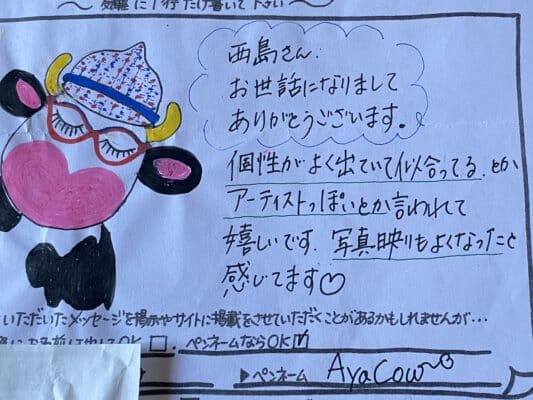 気軽に1行だけ書いて下さい
西島さん.
お世話になりまして
ありがとうございます。
個性がよく出ていて似合ってる.とか
アーティストっぽいとか言われて
嬉しいです.写真映りもよくなったと
感じてます♡
いただいたメッセージを掲示やサイトに掲載をさせていただくことがあるかもしれませんが…
OK □. ペンネームならOK ☑
▶ペンネーム AyaCow